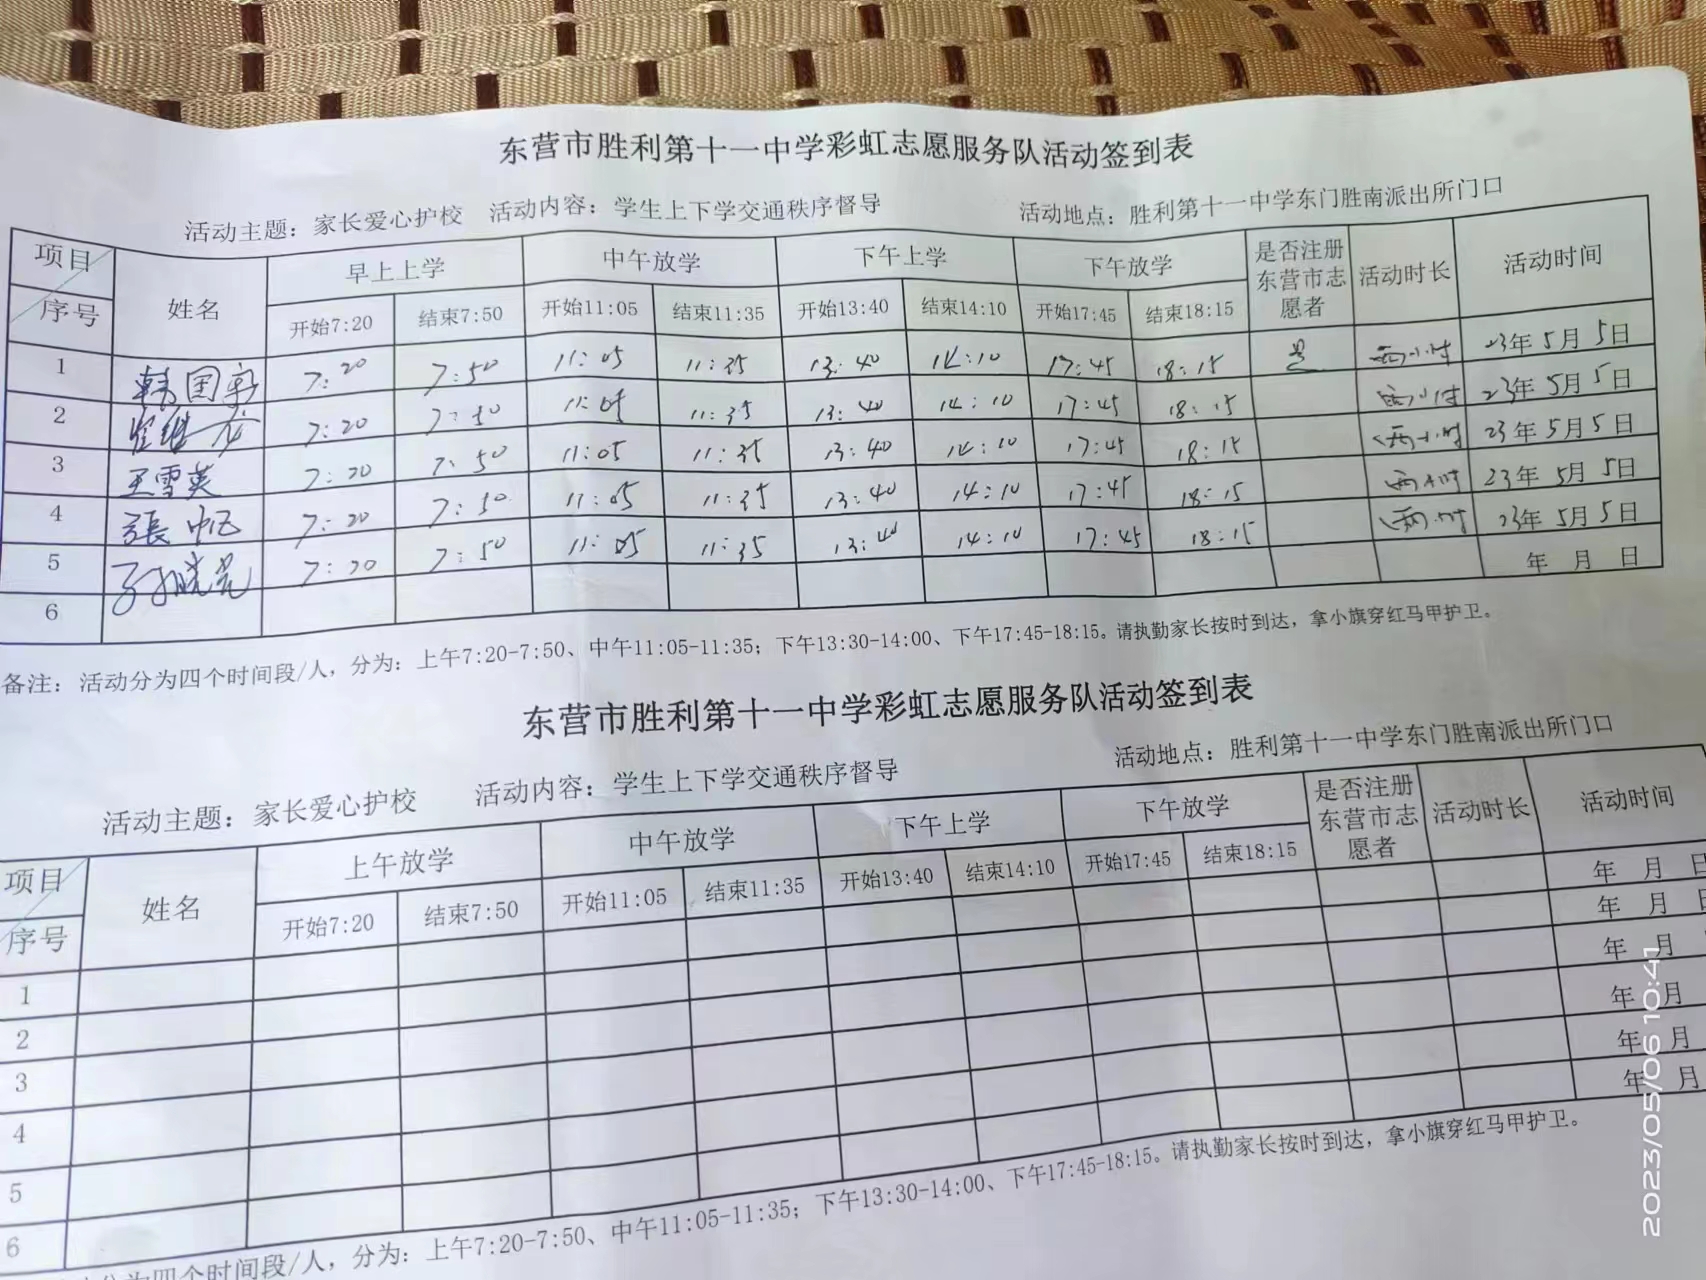 东营市胜利第十一中学彩虹志愿服务队活动签到表
活动主题：家长爱心护校 活动内容：学生上下学交通秩序督导 活动地点：胜利第十一中学东门胜南派出所门口
项目 序号 姓名 早上上学 中午放学 下午上学 下午放学 是否注册东营市志愿者 活动时长 活动时间
开始7:20 结束7:50 开始11:05 结束11:35 开始13:40 结束14:10 开始17:45 结束18:15
1 韩国 7:20 7:50 11:05 11:35 13:40 14:10 17:45 18:15 是 两小时 23年5月5日
2 7:20 7:50 11:05 11:35 13:40 14:10 17:45 18:15 两小时 23年5月5日
3 王雪英 7:20 7:50 11:05 11:35 13:40 14:10 17:45 18:15 两小时 23年5月5日
4 張 7:20 7:50 11:05 11:35 13:40 14:10 17:45 18:15 两小时 23年5月5日
5 孙晓 7:20 7:50 11:05 11:35 13:40 14:10 17:45 18:15 两小时 23年5月5日
6 年 月 日
备注：活动分为四个时间段/人，分为：上午7:20-7:50、中午11:05-11:35；下午13:30-14:00、下午17:45-18:15。请执勤家长按时到达，拿小旗穿红马甲护卫。
东营市胜利第十一中学彩虹志愿服务队活动签到表
活动主题：家长爱心护校 活动内容：学生上下学交通秩序督导 活动地点：胜利第十一中学东门胜南派出所门口
项目 序号 姓名 上午放学 中午放学 下午上学 下午放学 是否注册东营市志愿者 活动时长 活动时间
开始7:20 结束7:50 开始11:05 结束11:35 开始13:40 结束14:10 开始17:45 结束18:15
1 年 月 日
2 年 月 日
3 年 月
4 年 月
5 年 月
6 年 月
分为四个时间段/人，分为：上午7:20-7:50、中午11:05-11:35；下午13:30-14:00、下午17:45-18:15。请执勤家长按时到达，拿小旗穿红马甲护卫。
2023/05/06 10:41